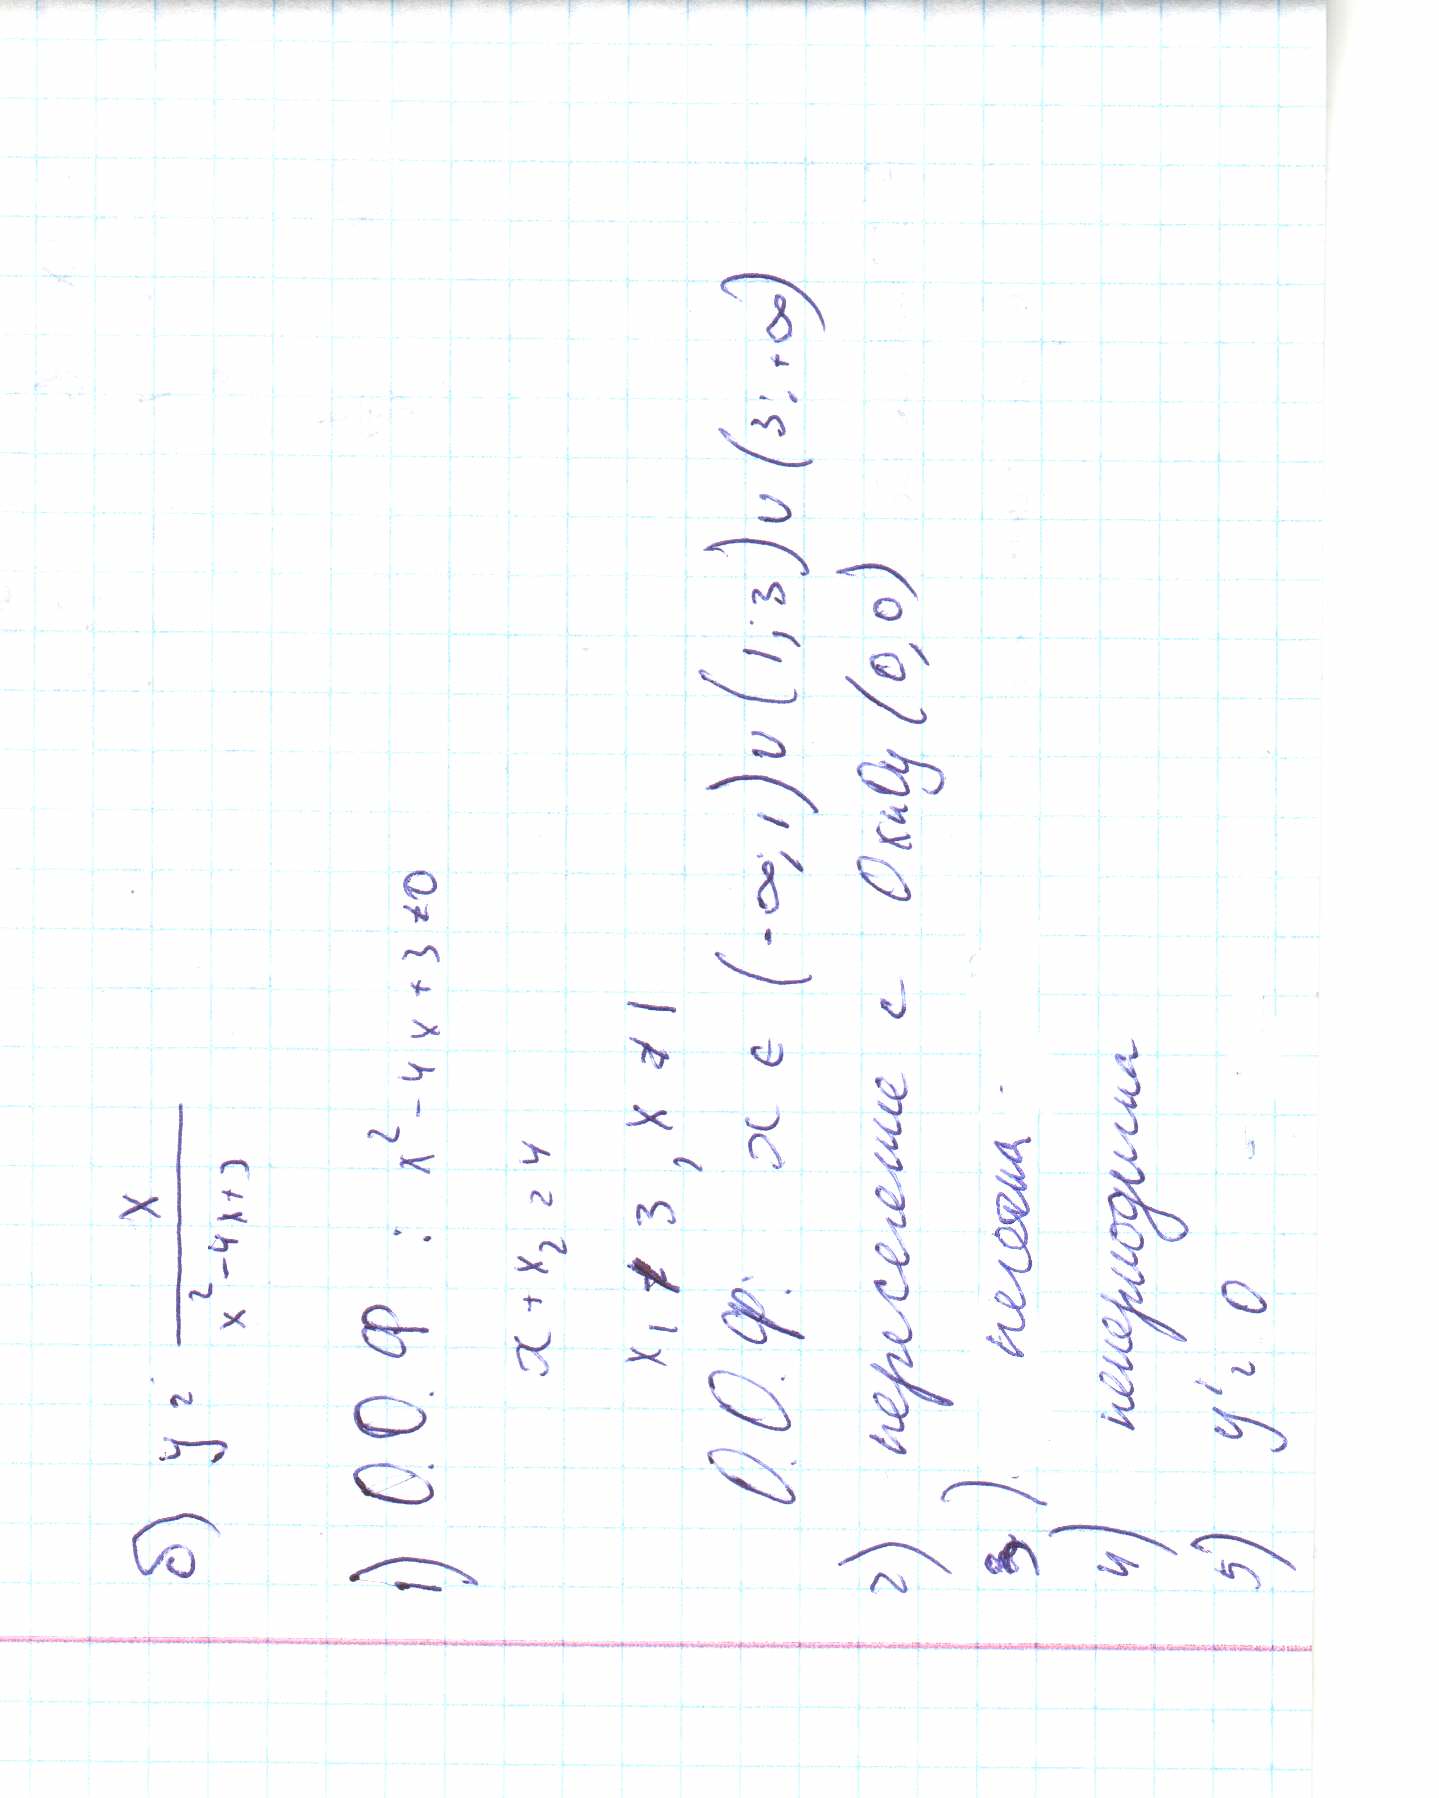 б) y = x / (x² - 4x + 3)
1) О.О.ф : x² - 4x + 3 ≠ 0
x + x₂ = 4
x₁ ≠ 3, x ≠ 1
О.О.ф. x ∈ (-∞; 1) ∪ (1; 3) ∪ (3; +∞)
2) пересечение с Ox и Oy (0,0)
3)
4) непериодична
5) y' = 0